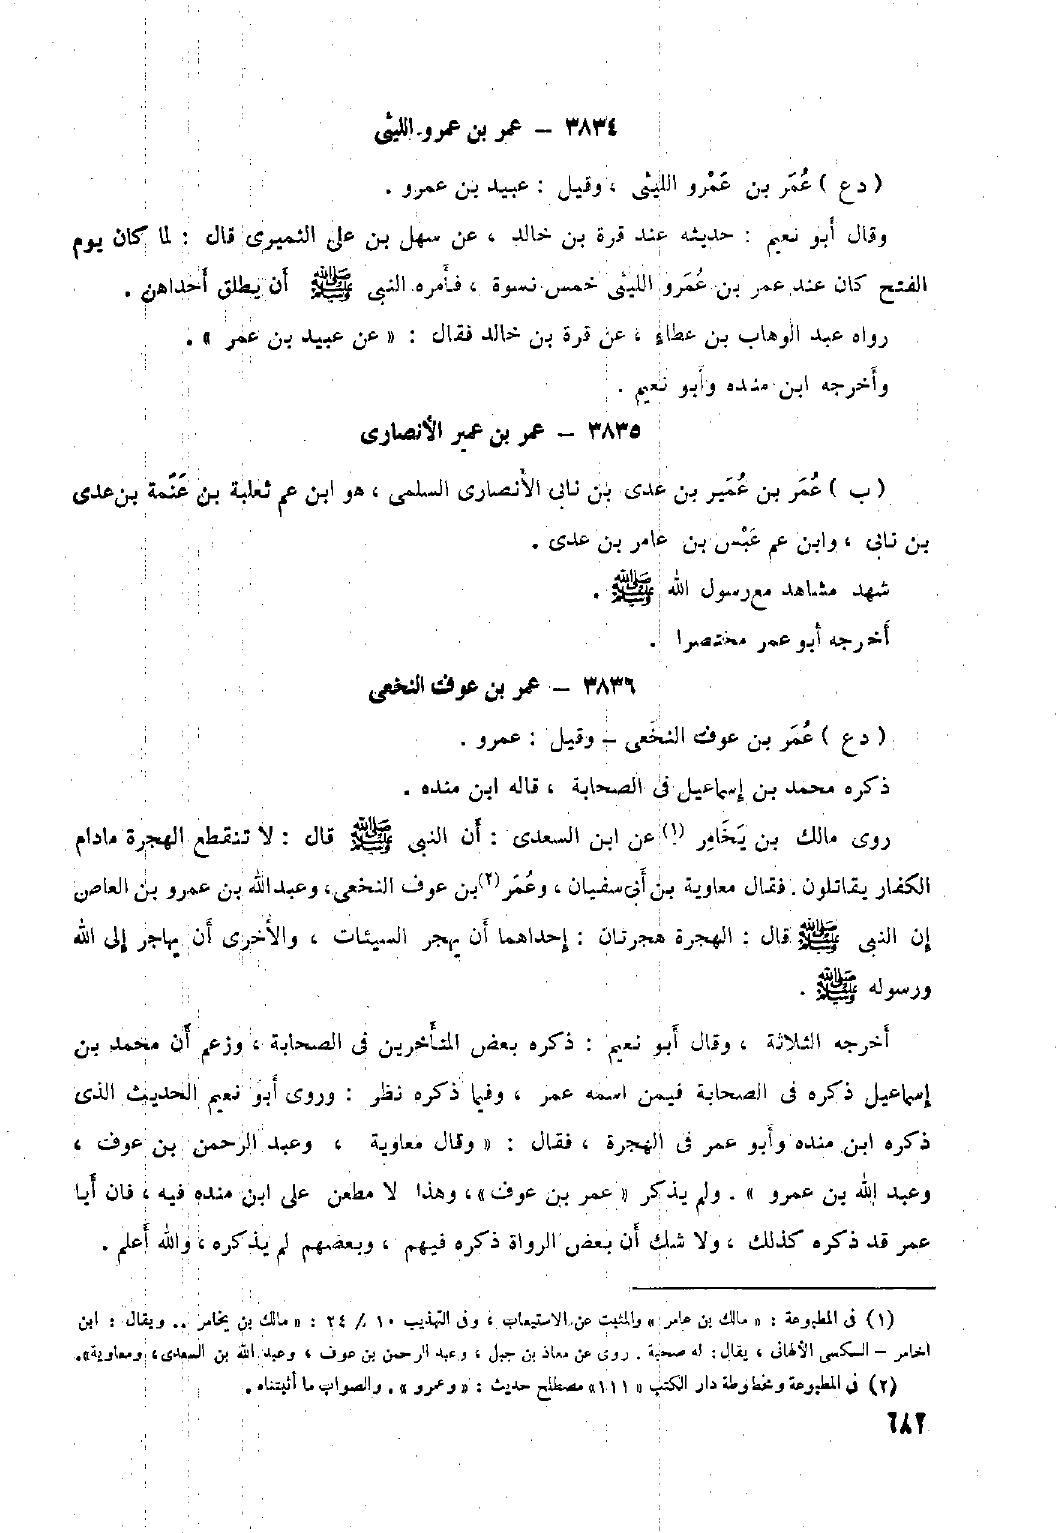 ٣٨٣٤ – عمر بن عمرو الليثى
( د ع ) عُمَر بن عَمْرو الليثى ، وقيل : عبيد بن عمرو .
وقال أبو نعيم : حديثه عند قرة بن خالد ، عن سهل بن على النميرى قال : لما كان يوم
الفتح كان عند عمر بن عُمَرو الليثى خمس نسوة ، فأمره النبى ﷺ أن يطلق أحداهن .
رواه عبد الوهاب بن عطاء ، عن قرة بن خالد فقال : « عن عبيد بن عمر » .
وأخرجه ابن منده وأبو نعيم .
٣٨٣٥ – عمر بن عمير الأنصارى
( ب ) عُمَر بن عُمَير بن عدى بن نابى الأنصارى السلمى ، هو ابن عم ثعلبة بن عَنَمة بن عدى
بن نابى ، وابن عم عَبْس بن عامر بن عدى .
شهد مشاهد مع رسول الله ﷺ .
أخرجه أبو عمر مختصرا .
٣٨٣٦ – عمر بن عوف النخعى
( د ع ) عُمَر بن عوف النخَعى – وقيل : عمرو .
ذكره محمد بن إسماعيل فى الصحابة ، قاله ابن منده .
روى مالك بن يَخَامِر (١) عن ابن السعدى : أن النبى ﷺ قال : لا تنقطع الهجرة مادام
الكفار يقاتلون . فقال معاوية بن أبى سفيان ، وعُمَر (٢) بن عوف النخعى ، وعبد الله بن عمرو بن العاص
إن النبى ﷺ قال : الهجرة هجرتان : إحداهما أن يهجر السيئات ، والأخرى أن يهاجر إلى الله
ورسوله ﷺ .
أخرجه الثلاثة ، وقال أبو نعيم : ذكره بعض المتأخرين فى الصحابة ، وزعم أن محمد بن
إسماعيل ذكره فى الصحابة فيمن اسمه عمر ، وفيما ذكره نظر : وروى أبو نعيم الحديث الذى
ذكره ابن منده وأبو عمر فى الهجرة ، فقال : « وقال معاوية ، وعبد الرحمن بن عوف ،
وعبد الله بن عمرو » . ولم يذكر « عمر بن عوف » ، وهذا لا مطعن على ابن منده فيه ، فان أبا
عمر قد ذكره كذلك ، ولا شك أن بعض الرواة ذكره فيهم ، وبعضهم لم يذكره ، والله أعلم .
(١) فى المطبوعة : « مالك بن عامر » والمثبت عن الاستيعاب ، وفى التهذيب ١٠ / ٢٤ : « مالك بن يخامر .. ويقال : ابن
اخامر – السكسى الألهانى ، يقال : له صحبة . روى عن معاذ بن جبل ، وعبد الرحمن بن عوف ، وعبد الله بن السعدى ، ومعاوية » .
(٢) فى المطبوعة ومخطوطة دار الكتب « ١١١ » مصطلح حديث : « وعمرو » . والصواب ما أثبتناه .
٦٨٢